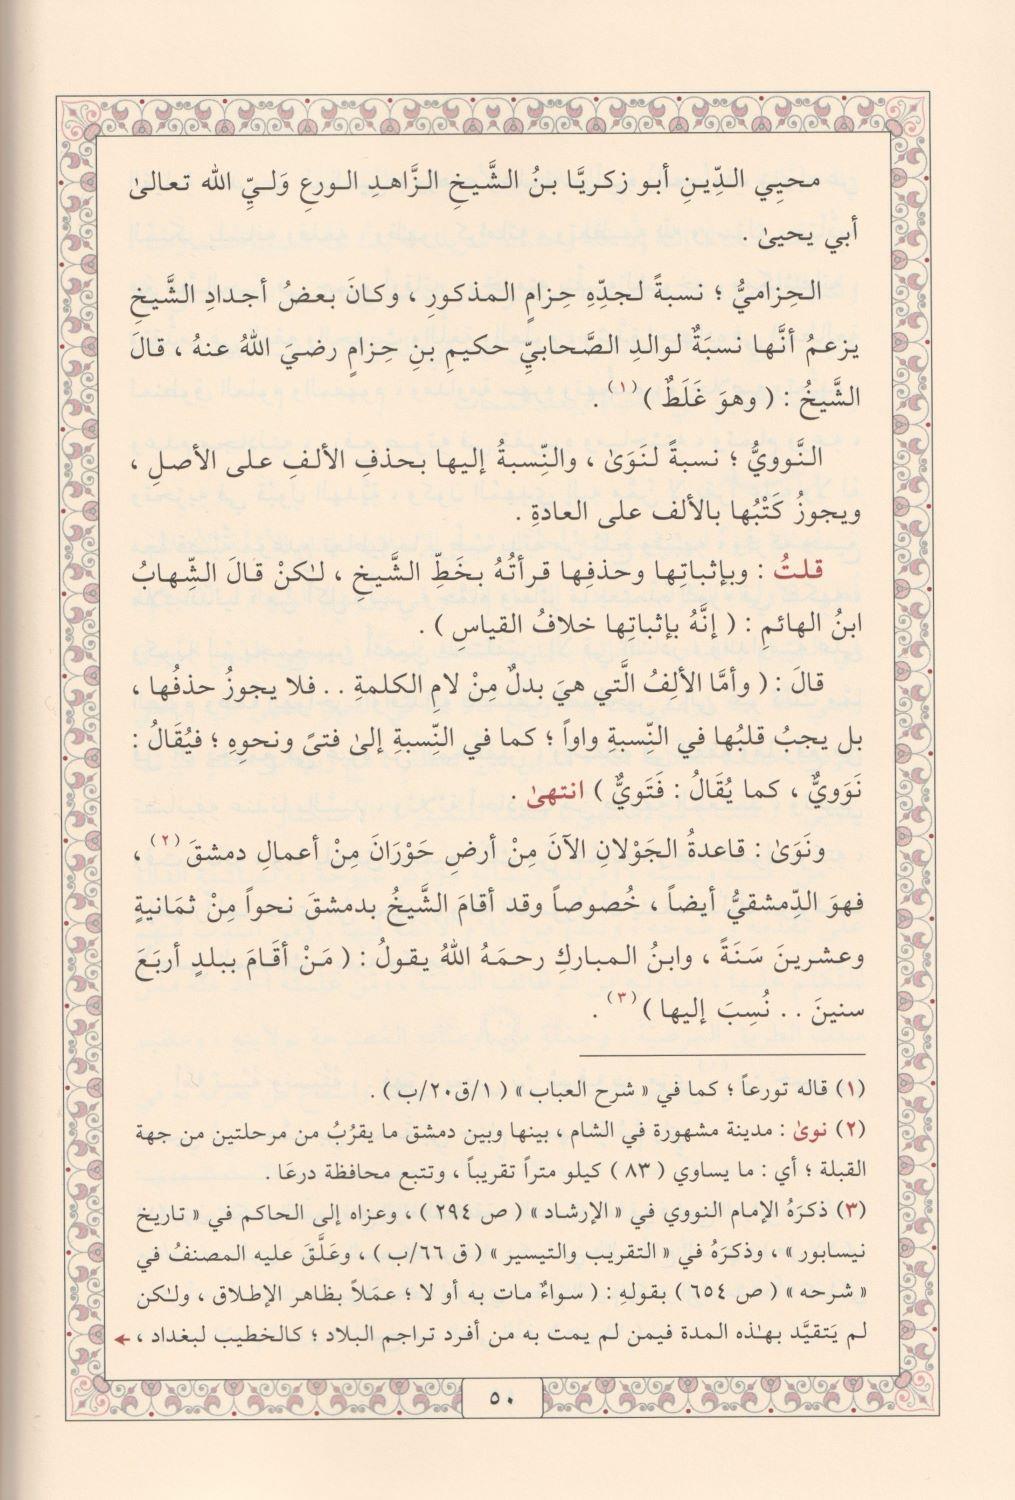 محيِي الدِّينِ أبو زكريَّا بنُ الشَّيخِ الزَّاهدِ الورعِ وَليِّ الله تعالىٰ
أبي يحيىٰ .
الحِزاميُّ ؛ نسبةً لجدِّهِ حِزامٍ المذكورِ ، وكانَ بعضُ أجدادِ الشَّيخِ
يزعمُ أنَّها نسبَةٌ لوالدِ الصَّحابيِّ حكيمِ بنِ حِزامٍ رضيَ اللهُ عنهُ ، قالَ
الشَّيخُ : ( وهوَ غَلَطٌ )(١) .
النَّوويُّ ؛ نسبةً لنَوَىٰ ، والنِّسبةُ إليها بحذفِ الألفِ على الأصلِ ،
ويجوزُ كَتْبُها بالألف على العادةِ .
قلتُ : وبإثباتِها وحذفِها قرأتُهُ بخَطِّ الشَّيخِ ، لـٰكنْ قالَ الشِّهابُ
ابنُ الهائمِ : ( إنَّهُ بإثباتِها خلافُ القياسِ ) .
قالَ : ( وأمَّا الألِفُ الَّتي هيَ بدلٌ مِنْ لامِ الكلمةِ . . فلا يجوزُ حذفُها ،
بل يجبُ قلبُها في النِّسبةِ واواً ؛ كما في النِّسبةِ إلىٰ فتىً ونحوِهِ ؛ فيُقَالُ :
نَوَويٌّ ، كما يُقَالُ : فَتَويٌّ ) انتهىٰ .
ونَوَىٰ : قاعدةُ الجَوْلانِ الآنَ مِنْ أرضِ حَوْرَانَ مِنْ أعمالِ دمشقَ(٢) ،
فهوَ الدِّمشقيُّ أيضاً ، خُصوصاً وقد أقامَ الشَّيخُ بدمشقَ نحواً مِنْ ثمَانيةٍ
وعشرينَ سَنَةً ، وابنُ المباركِ رحمَهُ اللهُ يقولُ : ( مَنْ أقَامَ ببلدٍ أربَعَ
سنينَ . . نُسِبَ إليها )(٣) .
(١) قاله تورعاً ؛ كما في « شرح العباب » ( ١/ق٢٠/ب ) .
(٢) نوىٰ : مدينة مشهورة في الشام ، بينها وبين دمشق ما يقرُبُ من مرحلتين من جهة
القبلة ؛ أي : ما يساوي ( ٨٣ ) كيلو متراً تقريباً ، وتتبع محافظة درعَا .
(٣) ذكرَهُ الإمام النووي في « الإرشاد » ( ص ٢٩٤ ) ، وعزاه إلى الحاكم في « تاريخ
نيسابور » ، وذكرَهُ في « التقريب والتيسير » ( ق ٦٦/ب ) ، وعَلَّقَ عليه المصنفُ في
« شرحه » ( ص ٦٥٤ ) بقولهِ : ( سواءٌ مات به أو لا ؛ عمَلاً بظاهر الإطلاق ، ولـٰكن
لم يَتقيَّد بهـٰذه المدة فيمن لم يمت به من أفرد تراجم البلاد ؛ كالخطيب لبغداد ،
٥٠